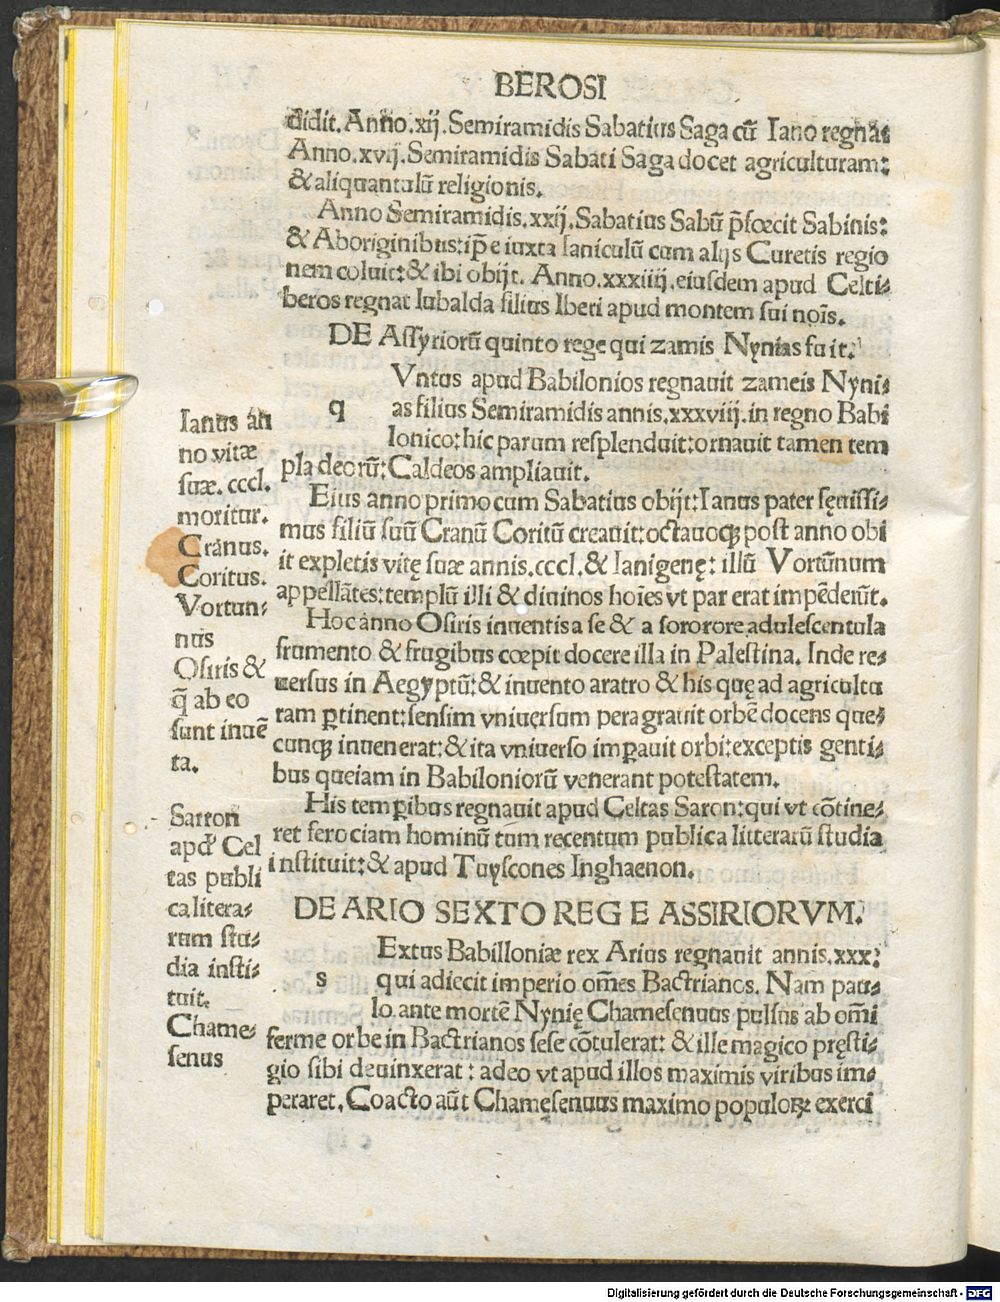 BEROSI
didit. Anno.xij.Semiramidis Sabatius Saga cū Iano regnāt
Anno.xvij.Semiramidis Sabati Saga docet agriculturam:
& aliquantulū religionis.
Anno Semiramidis.xxij.Sabatius Sabū p̄fœcit Sabinis:
& Aboriginibus:ip̄e iuxta Ianiculū cum alijs Curetis regio
nem coluit:& ibi obijt. Anno.xxxiiij.eiusdem apud Celti⸗
beros regnat Iubalda filius Iberi apud montem sui nōis.
DE Assyriorū quinto rege qui zamis Nynias fuit.
q Vntus apud Babilonios regnauit zameis Nyni⸗
as filius Semiramidis annis.xxxviij.in regno Babi
lonico:hic parum resplenduit:ornauit tamen tem
pla deorū:Caldeos ampliauit.
Eius anno primo cum Sabatius obijt:Ianus pater sęnissi⸗
mus filiū suū Cranū Coritū creauit:octauoqꝫ post anno obi
it expletis vitę suæ annis.cccl.& Ianigenę: illū Vortūnum
appellātes:templū illi & diuinos hoīes vt par erat impēderūt.
Hoc anno Osiris inuentis a se & a sororore adulescentula
frumento & frugibus cœpit docere illa in Palestina. Inde re⸗
uersus in Aegyptū:& inuento aratro & his quę ad agricultu
ram ꝑtinent:sensim vniuęrsum peragrauit orbē docens que⸗
cunqꝫ inuenerat:& ita vniuerso imꝑauit orbi:exceptis genti⸗
bus quę iam in Babiloniorū venerant potestatem.
His temꝑibus regnauit apud Celtas Saron:qui vt cōtine⸗
ret ferociam hominū tum recentum publica litterarū studia
instituit:& apud Tuyscones Inghaenon.
DE ARIO SEXTO REGE ASSIRIORVM.
s Extus Babilloniæ rex Arius regnauit annis.xxx:
qui adiecit imperio om̄es Bactrianos. Nam pau⸗
lo ante mortē Nynię Chamesenuus pulsus ab om̄i
ferme orbe in Bactrianos sese cōtulerat: & ille magico pręsti⸗
gio sibi deuinxerat: adeo vt apud illos maximis viribus im⸗
peraret. Coacto aūt Chamęsenuus maximo populoꝝ exerci
Ianus ān
no vitæ
suæ. cccl.
moritur.
Cranus.
Coritus.
Vortun⸗
nus
Osiris &
q̄ ab eo
sunt inuē
ta.
Sarron
apđ Cel
tas publi
ca litera⸗
rum stu⸗
dia insti⸗
tuit.
Chame⸗
senus
Digitalisierung gefördert durch die Deutsche Forschungsgemeinschaft - DFG